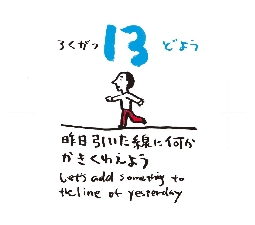 ろくがつ 13 どよう
昨日引いた線に何か
かきくわえよう
Let's add something to
the line of yesterday